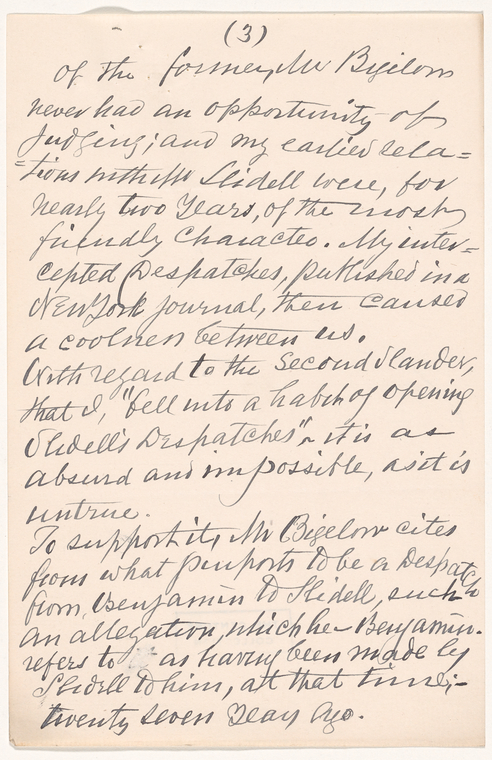 (3)
of the former, Mr Bigelow
never had an opportunity of
judging; and my earlier rela=
=tions with Mr Slidell were, for
nearly two years, of the most
friendly character. My inter-
cepted Despatches, published in a
New York journal, then caused
a coolness between us.
With regard to the second slander,
that I, "fell into a habit of opening
Slidell's Despatches" - it is as
absurd and impossible, as it is
untrue.
To support it, Mr Bigelow cites
from what purports to be a Despatch
from Benjamin to Slidell, such
an allegation, which he - Benjamin -
refers to as having been made by
Slidell to him, at that time; -
twenty seven years ago.